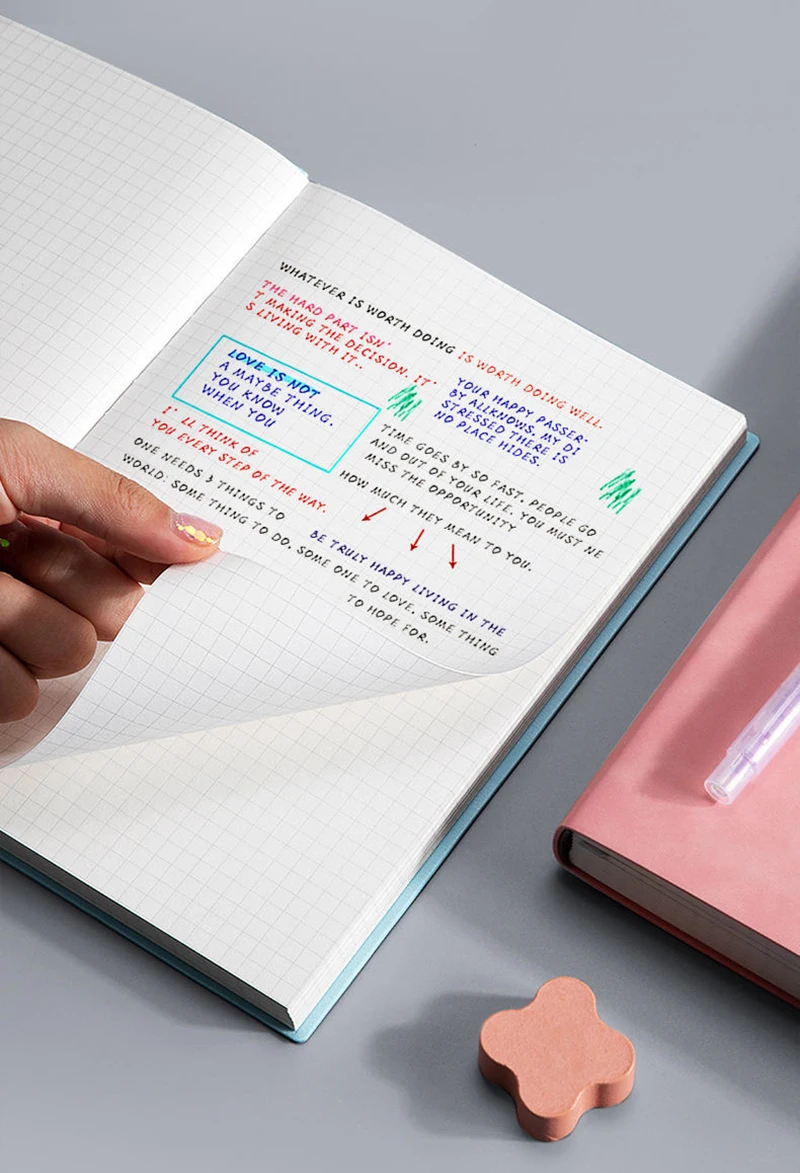 WHATEVER IS WORTH DOING IS WORTH DOING WELL.
THE HARD PART ISN'
T MAKING THE DECISION, IT'
S LIVING WITH IT..
LOVE IS NOT
A MAYBE THING.
YOU KNOW
WHEN YOU
YOUR HAPPY PASSER-
BY ALLKNOWS, MY DI
STRESSED THERE IS
NO PLACE HIDES.
I' LL THINK OF
YOU EVERY STEP OF THE WAY.
TIME GOES BY SO FAST, PEOPLE GO
AND OUT OF YOUR LIFE. YOU MUST NE
MISS THE OPPORTUNITY
HOW MUCH THEY MEAN TO YOU.
ONE NEEDS 3 THINGS TO
BE TRULY HAPPY LIVING IN THE
WORLD: SOME THING TO DO, SOME ONE TO LOVE, SOME THING
TO HOPE FOR.